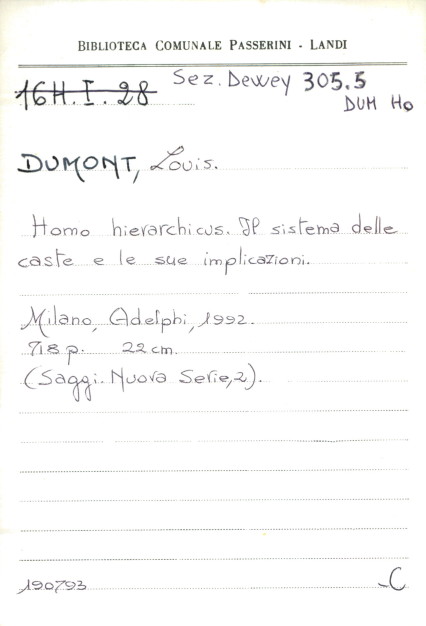 BIBLIOTECA COMUNALE PASSERINI - LANDI
16H.I.28 Sez. Dewey 305.5
DUM Ho
DUMONT, Louis.
Homo hierarchicus. Il sistema delle
caste e le sue implicazioni.
Milano, Adelphi, 1992.
718 p. 22 cm.
(Saggi. Nuova Serie, 2).
190793 -C